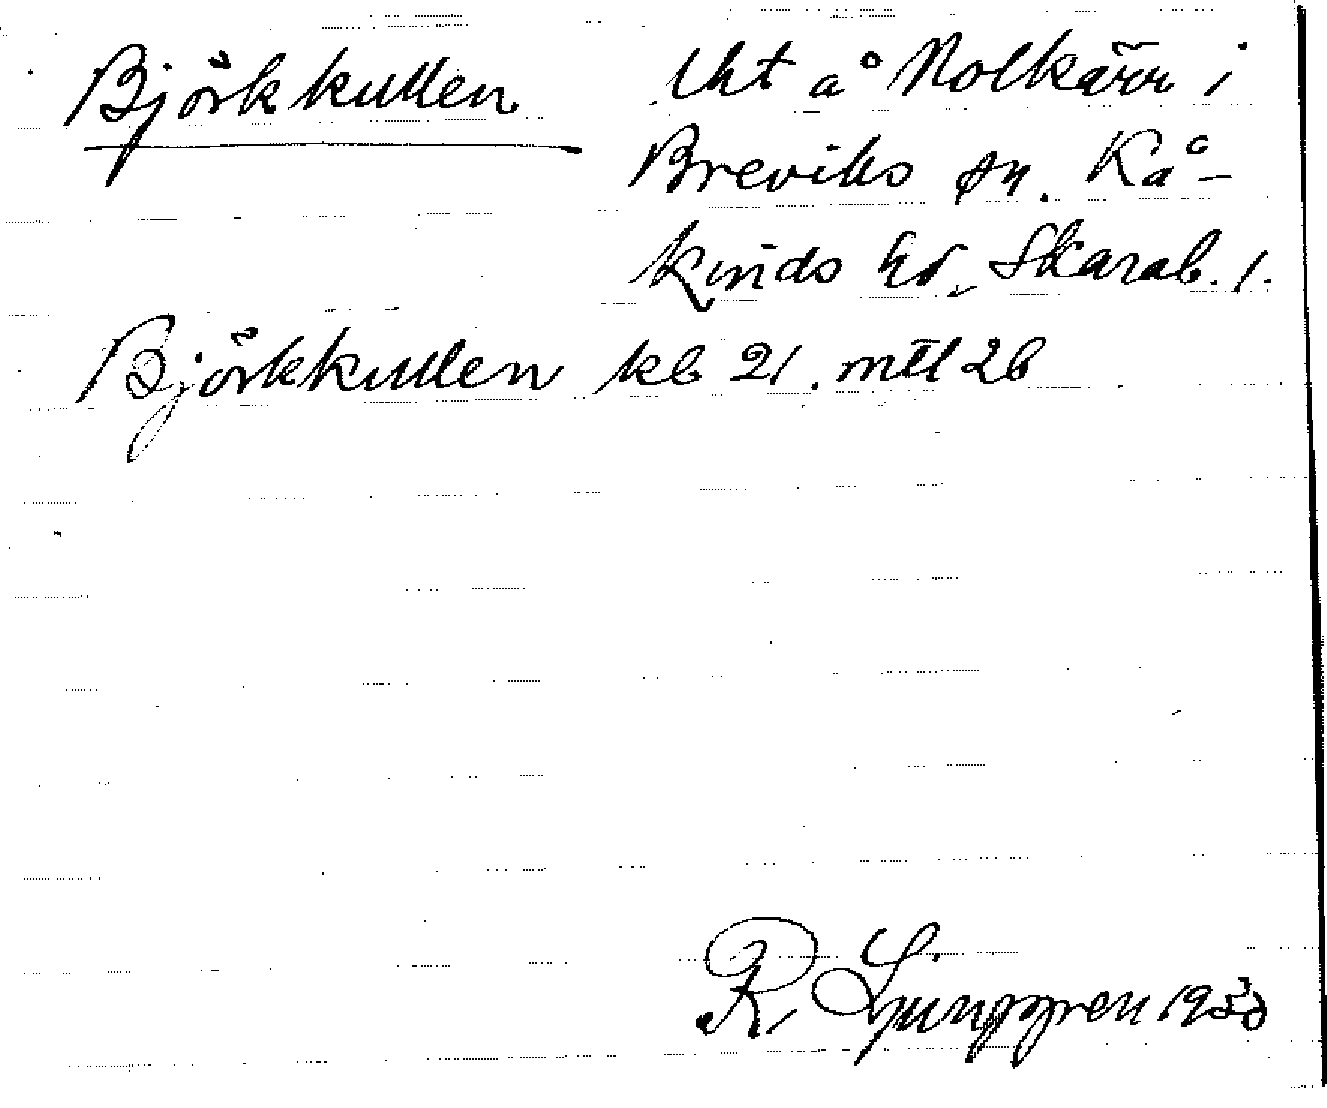 Björkkullen Uht å Nolkärr i
Breviks sn. Kå-
kinds hd, Skarab. l.
Björkkullen kb 21. mtl 26
R. Ljunggren 1950